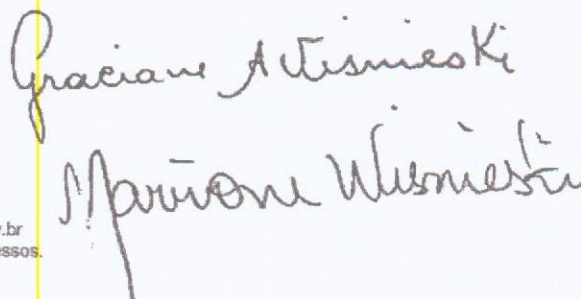 Graciane A Wisnieski
Marione Wisnieski
.br
essos.